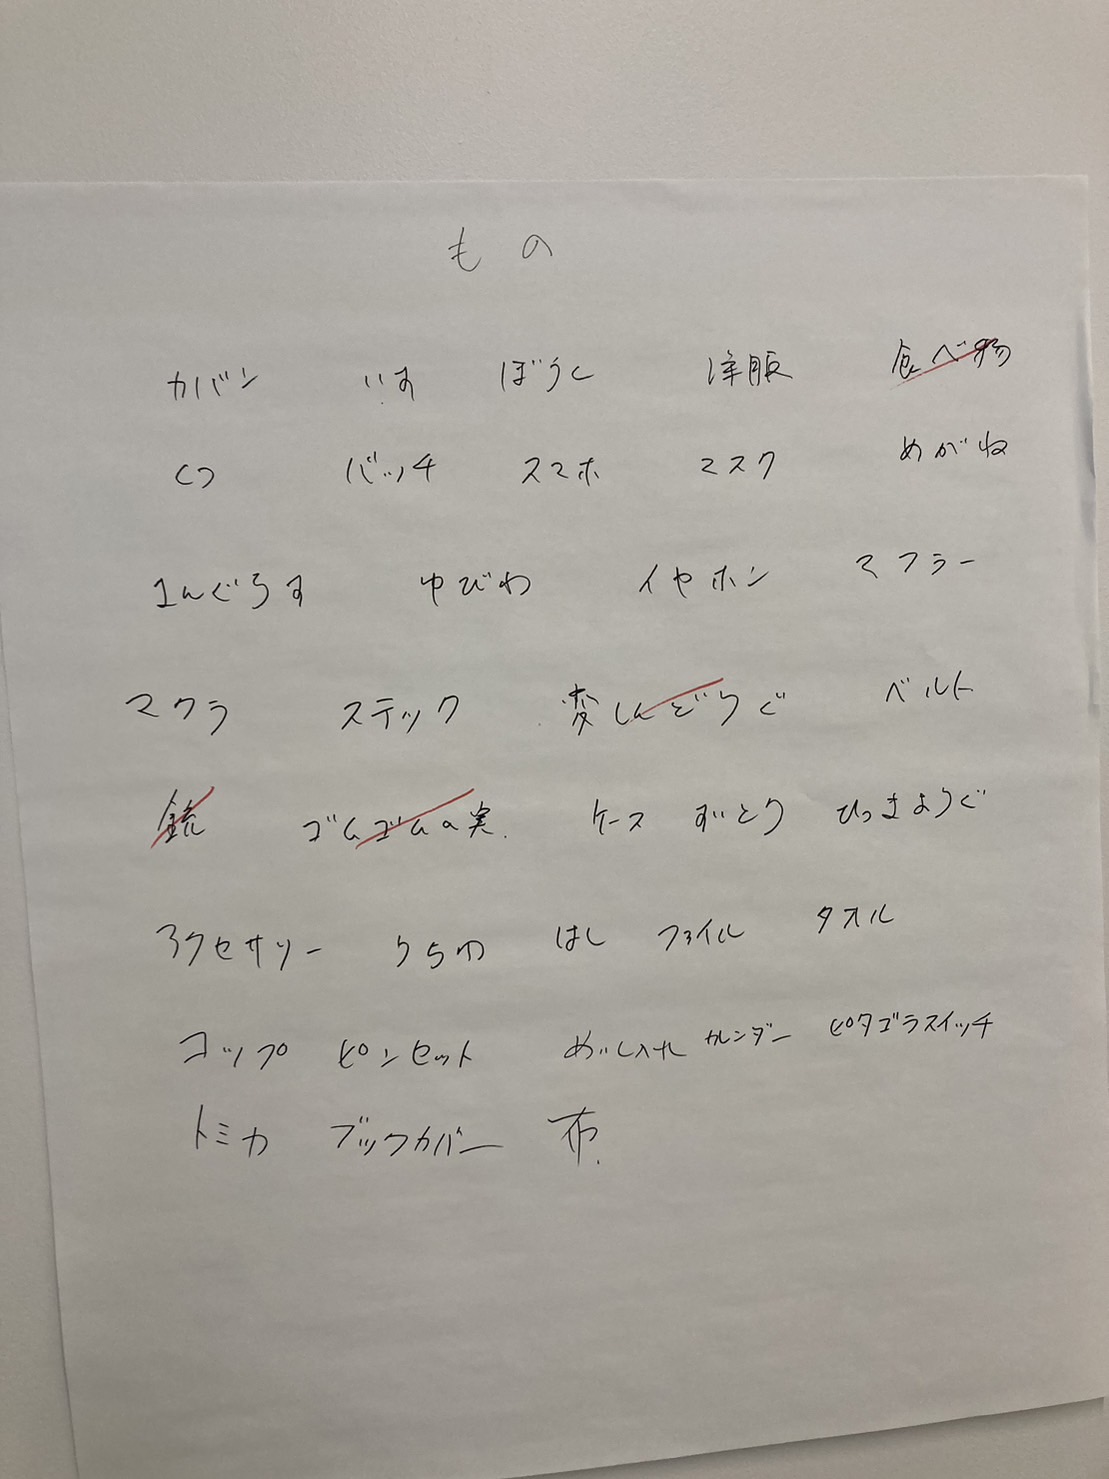 もの
カバン いす ぼうし 洋服 食べ物
くつ バッチ スマホ マスク めがね
さんぐらす ゆびわ イヤホン マフラー
マクラ ステック 変しんどうぐ ベルト
銃 ゴムゴムの実 ケース すいとう ひっきようぐ
アクセサリー うちわ はし ファイル タオル
コップ ピンセット めいし入れ カレンダー ピタゴラスイッチ
トミカ ブックカバー 布